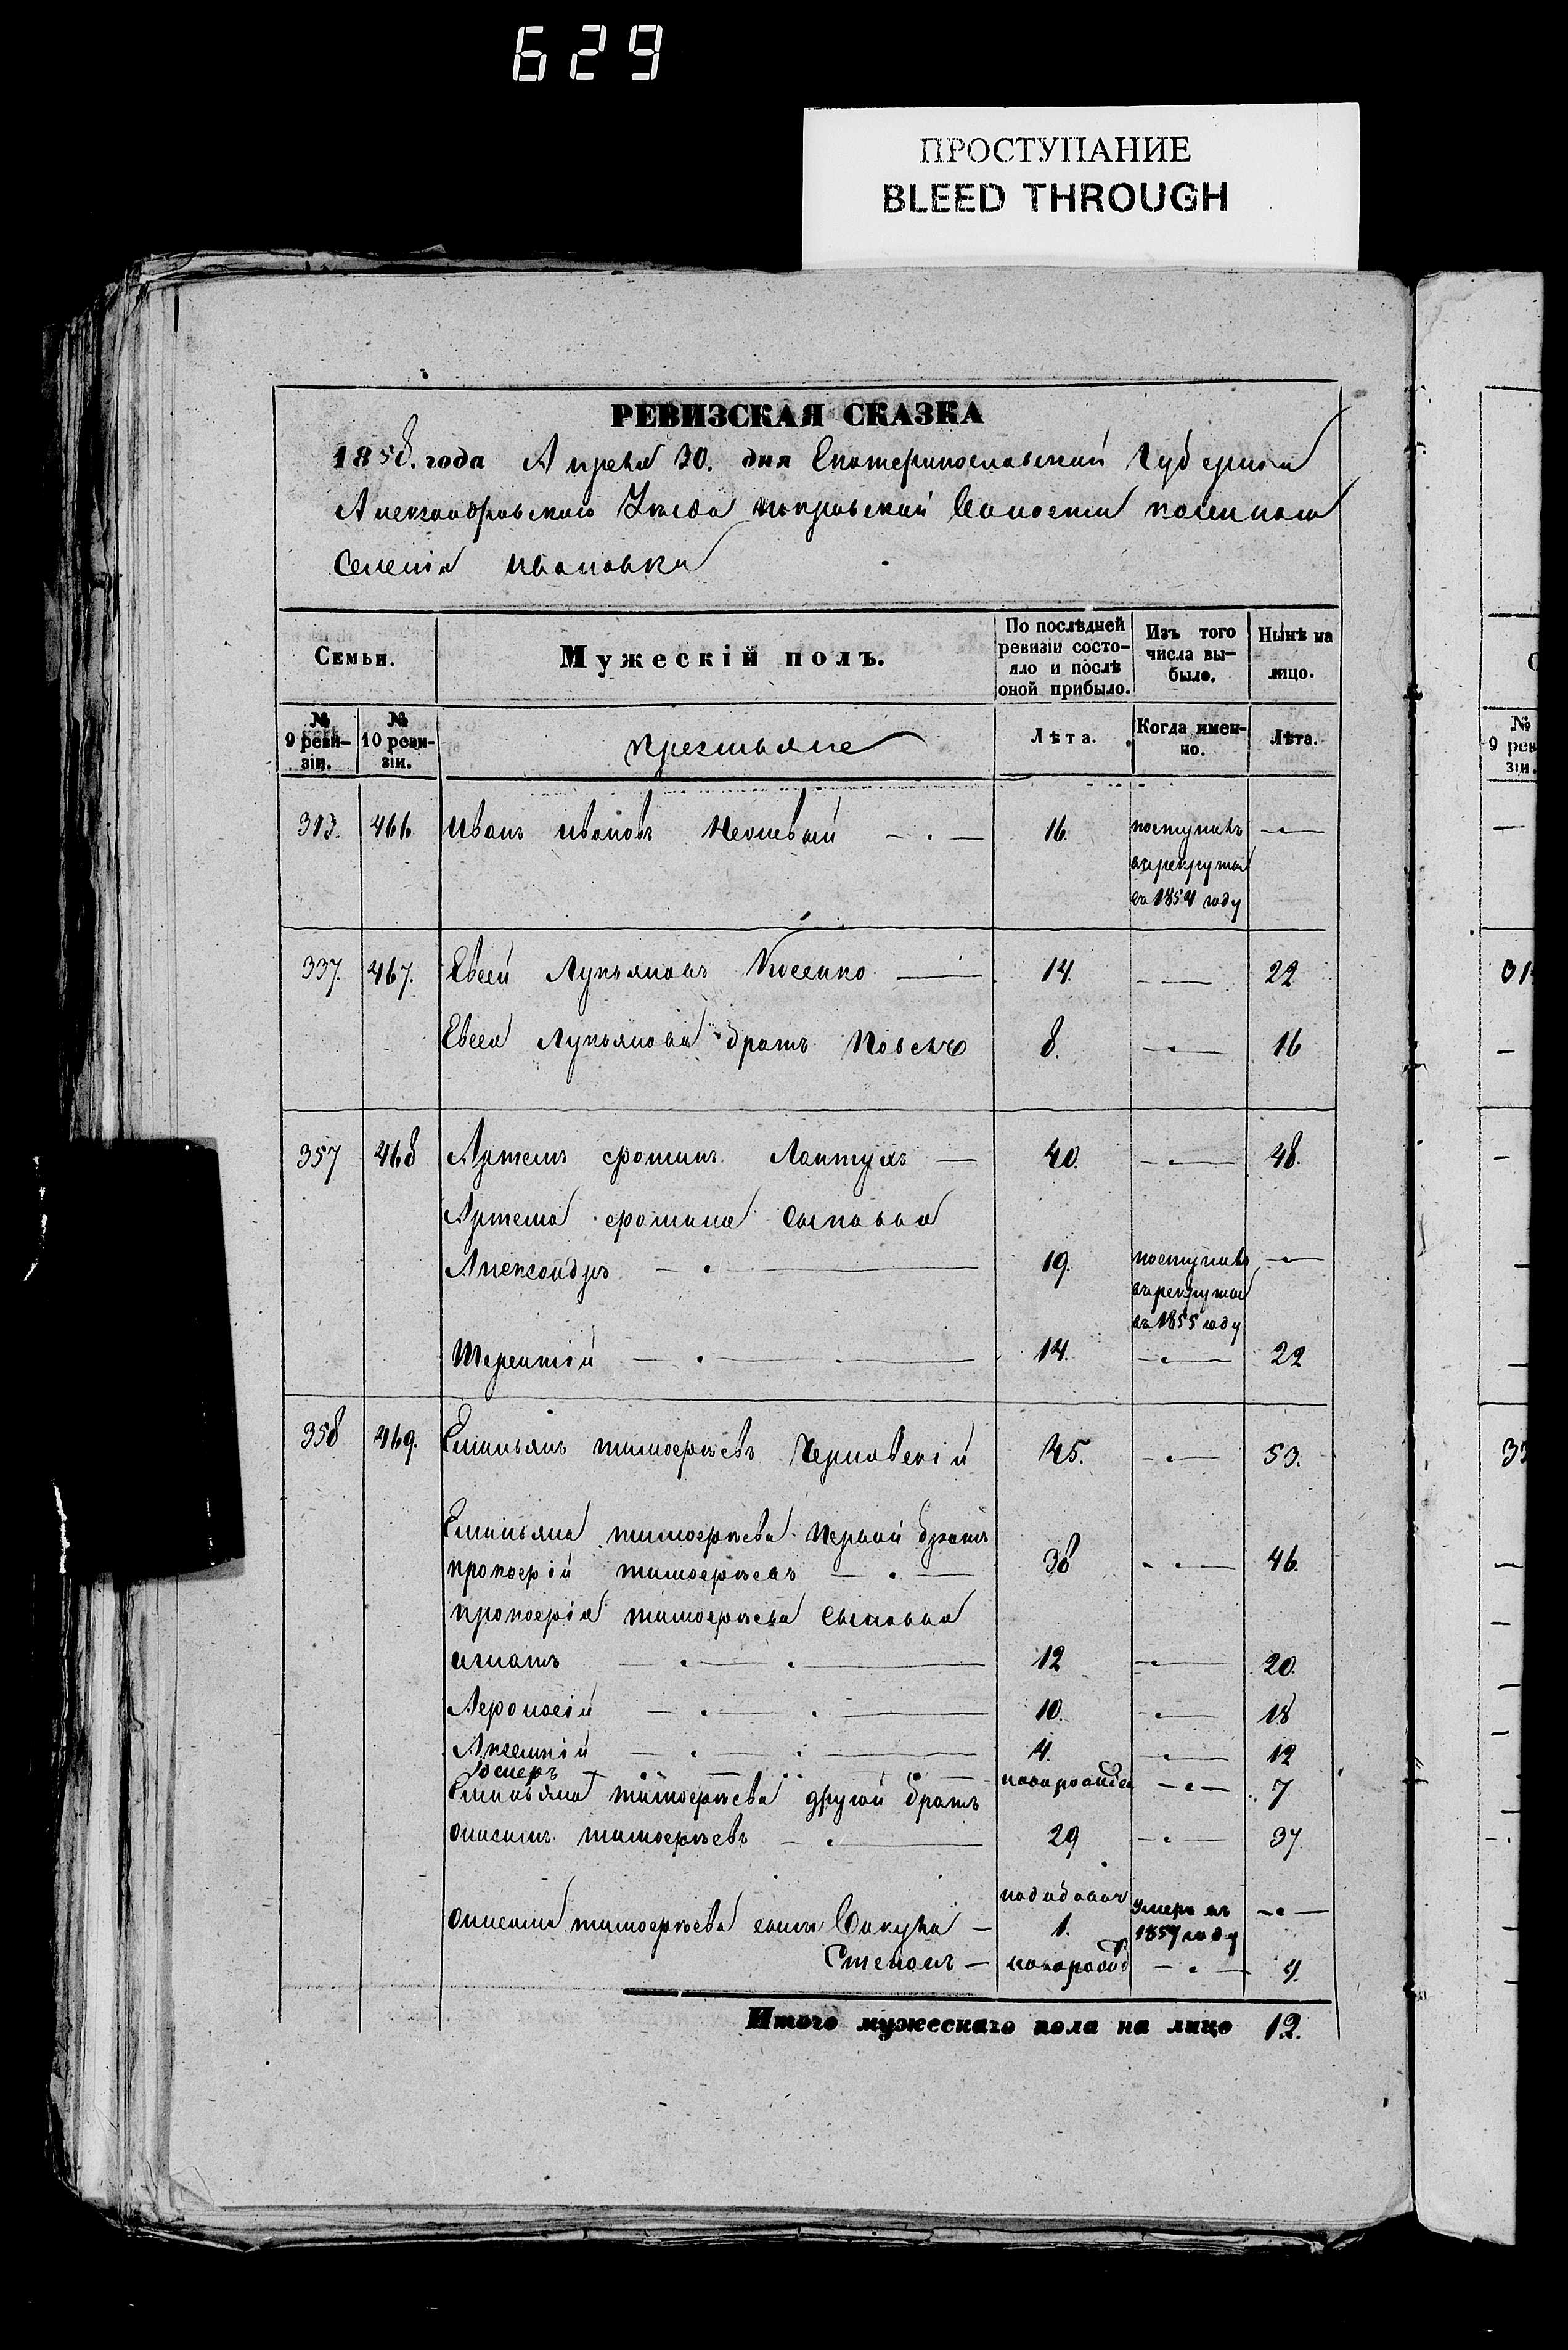 629
ПРОСТУПАНИЕ
BLEED THROUGH
РЕВИЗСКАЯ СКАЗКА
1858. года Апреля 30. дня Екатеринославской Губернии
Александровского Уезда покровской Волости казенного
Селенія Ивановки
Семьи.
Мужескій полъ.
По послѣдней ревизіи состо-
яло и послѣ
оной прибыло.
Изъ того
числа вы-
было.
Нынѣ на
лицо.
№ 9 реви-
зіи.
№ 10 реви-
зіи.
крестьяне
Лѣта.
Когда имен-
но.
Лѣта.
313. 466 Иванъ ивановъ 16. поступилъ
врекруты
въ 1854 году
337. 467. Евсей Лукьяновъ Косенко 14. 22
Евсея Лукьянова братъ Павелъ 8. 16
357 468 Артемъ фоминъ Лантухъ 40. 48.
Артема фомина Сыновья
Александръ 19. поступилъ
врекруты
въ 1855 году
Терентій 14. 22
358 469. Емельянъ тимофѣевъ Чернявскій 45. 53.
Емельяна тимофѣева первой братъ
прокофій тимофѣевъ 38 46.
прокофія тимофѣева Сыновья
игнатъ 12 20.
Афонасій 10. 18
Аксентій 4. 12
новорожден 7
Емельяна тимофѣева другой братъ
онисимъ тимофѣевъ 29 37
онисима тимофѣева сынъ Вакула 1. умеръ въ
1857 году
Степанъ новорожд 4.
Итого мужескаго пола на лицо 12.
№
9 рев
зіи.